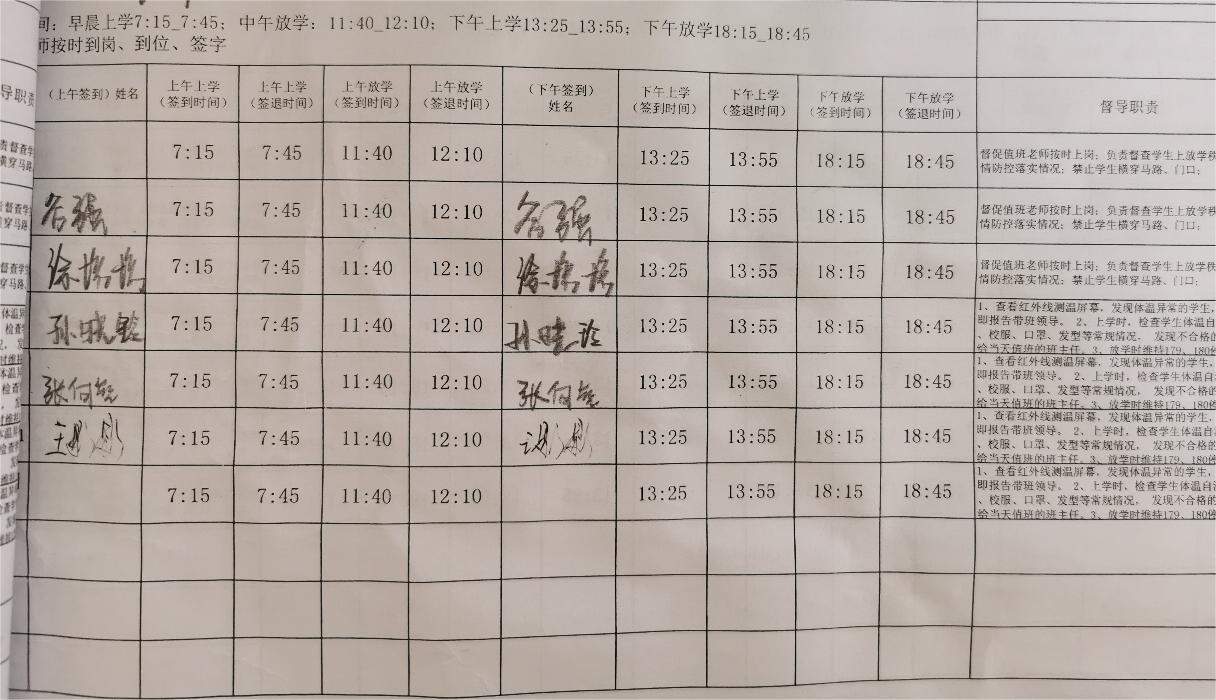 间：早晨上学7:15_7:45；中午放学：11:40_12:10；下午上学13:25_13:55；下午放学18:15_18:45
师按时到岗、到位、签字
导职责 （上午签到）姓名 上午上学（签到时间） 上午上学（签退时间） 上午放学（签到时间） 上午放学（签退时间） （下午签到）姓名 下午上学（签到时间） 下午上学（签退时间） 下午放学（签到时间） 下午放学（签退时间） 督导职责
7:15 7:45 11:40 12:10 13:25 13:55 18:15 18:45 督促值班老师按时上岗；负责督查学生上放学秩
情防控落实情况；禁止学生横穿马路、门口；
谷强 7:15 7:45 11:40 12:10 谷强 13:25 13:55 18:15 18:45 督促值班老师按时上岗；负责督查学生上放学秩
情防控落实情况；禁止学生横穿马路、门口；
7:15 7:45 11:40 12:10 13:25 13:55 18:15 18:45 督促值班老师按时上岗；负责督查学生上放学秩
情防控落实情况；禁止学生横穿马路、门口；
7:15 7:45 11:40 12:10 13:25 13:55 18:15 18:45 1、查看红外线测温屏幕，发现体温异常的学生，
即报告带班领导。 2、上学时，检查学生体温自
、校服、口罩、发型等常规情况， 发现不合格的
给当天值班的班主任。3、放学时维持179、180停
7:15 7:45 11:40 12:10 13:25 13:55 18:15 18:45 1、查看红外线测温屏幕，发现体温异常的学生，
即报告带班领导。 2、上学时，检查学生体温自
、校服、口罩、发型等常规情况， 发现不合格的
给当天值班的班主任。3、放学时维持179、180停
7:15 7:45 11:40 12:10 13:25 13:55 18:15 18:45 1、查看红外线测温屏幕，发现体温异常的学生，
即报告带班领导。 2、上学时，检查学生体温自
、校服、口罩、发型等常规情况， 发现不合格的
给当天值班的班主任。3、放学时维持179、180停
7:15 7:45 11:40 12:10 13:25 13:55 18:15 18:45 1、查看红外线测温屏幕，发现体温异常的学生，
即报告带班领导。 2、上学时，检查学生体温自
、校服、口罩、发型等常规情况， 发现不合格的
给当天值班的班主任。3、放学时维持179、180停